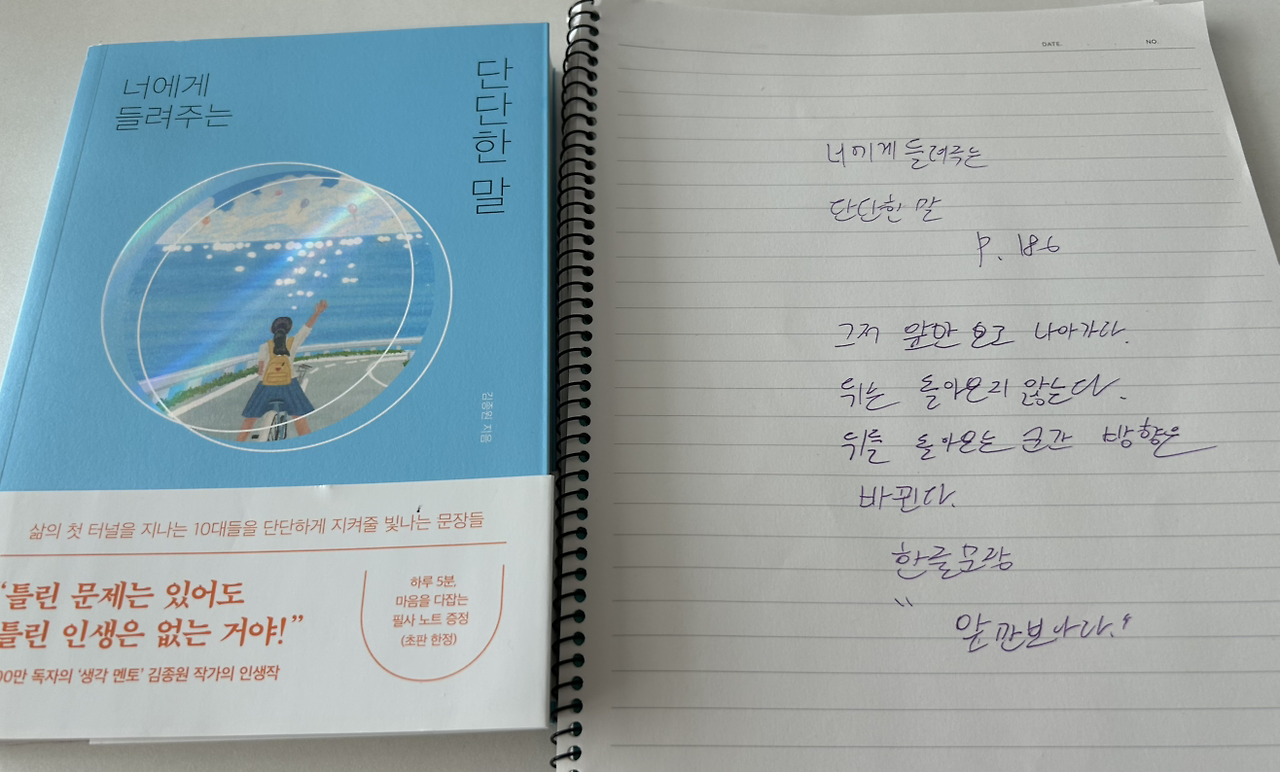 너에게
들려주는
단단한 말
김종원 지음
삶의 첫 터널을 지나는 10대들을 단단하게 지켜줄 빛나는 문장들
“틀린 문제는 있어도
틀린 인생은 없는 거야!”
00만 독자의 ‘생각 멘토’ 김종원 작가의 인생작
하루 5분,
마음을 다잡는
필사 노트 증정
(초판 한정)
DATE. NO.
너에게 들려주는
단단한 말
P. 186
그저 앞만 보고 나아가다.
뒤는 돌아오지 않는다.
뒤를 돌아오는 순간 방향은
바뀐다.
"
앞만보아라."